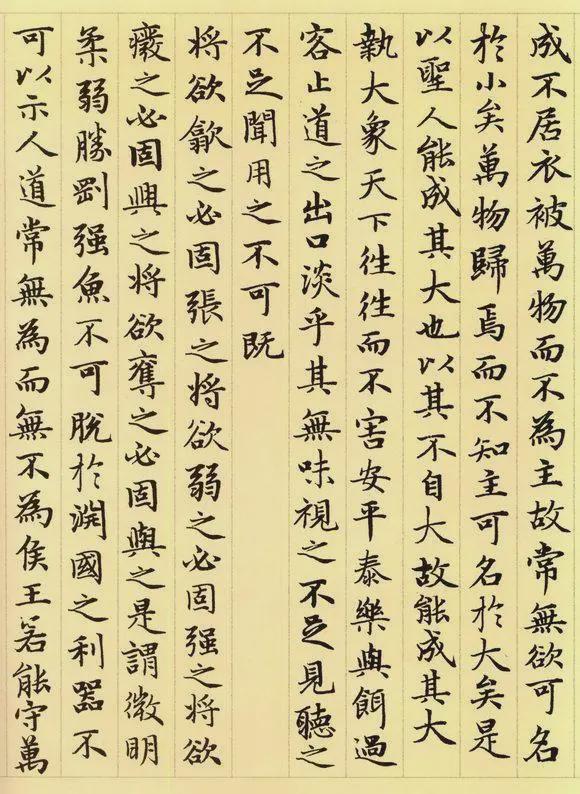 成不居衣被萬物而不為主故常無欲可名
於小矣萬物歸焉而不知主可名於大矣是
以聖人能成其大也以其不自大故能成其大
執大象天下往往而不害安平泰樂與餌過
客止道之出口淡乎其無味視之不足見聽之
不足聞用之不可既
将欲歙之必固張之将欲弱之必固强之将欲
廢之必固興之将欲奪之必固與之是謂微明
柔弱勝剛强魚不可脫於淵國之利器不
可以示人道常無為而無不為侯王若能守萬